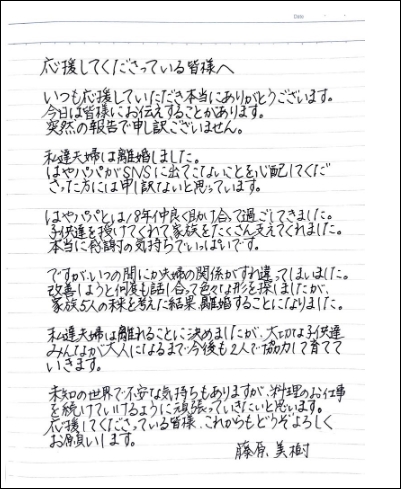 Date
応援してくださっている皆様へ
いつも応援していただき本当にありがとうございます。
今日は皆様にお伝えすることがあります。
突然の報告で申し訳ございません。
私達夫婦は離婚しました。
はやパパがSNSに出てこないことを心配してくだ
さった方には申し訳ないと思っています。
はやパパとは18年仲良く助け合って過ごしてきました。
子供達を授けてくれて家族をたくさん支えてくれました。
本当に感謝の気持ちでいっぱいです。
ですがいつの間にか夫婦の関係がすれ違ってしまいました。
改善しようと何度も話し合って色々な形を探しましたが、
家族5人の未来を考えた結果、離婚することになりました。
私達夫婦は離れることに決めましたが、大切な子供達
みんなが大人になるまで今後も2人で協力して育てて
いきます。
未知の世界で不安な気持ちもありますが、料理のお仕事
を続けていけるように頑張っていきたいと思います。
応援してくださっている皆様、これからもどうぞよろしく
お願いします。
藤原、美樹